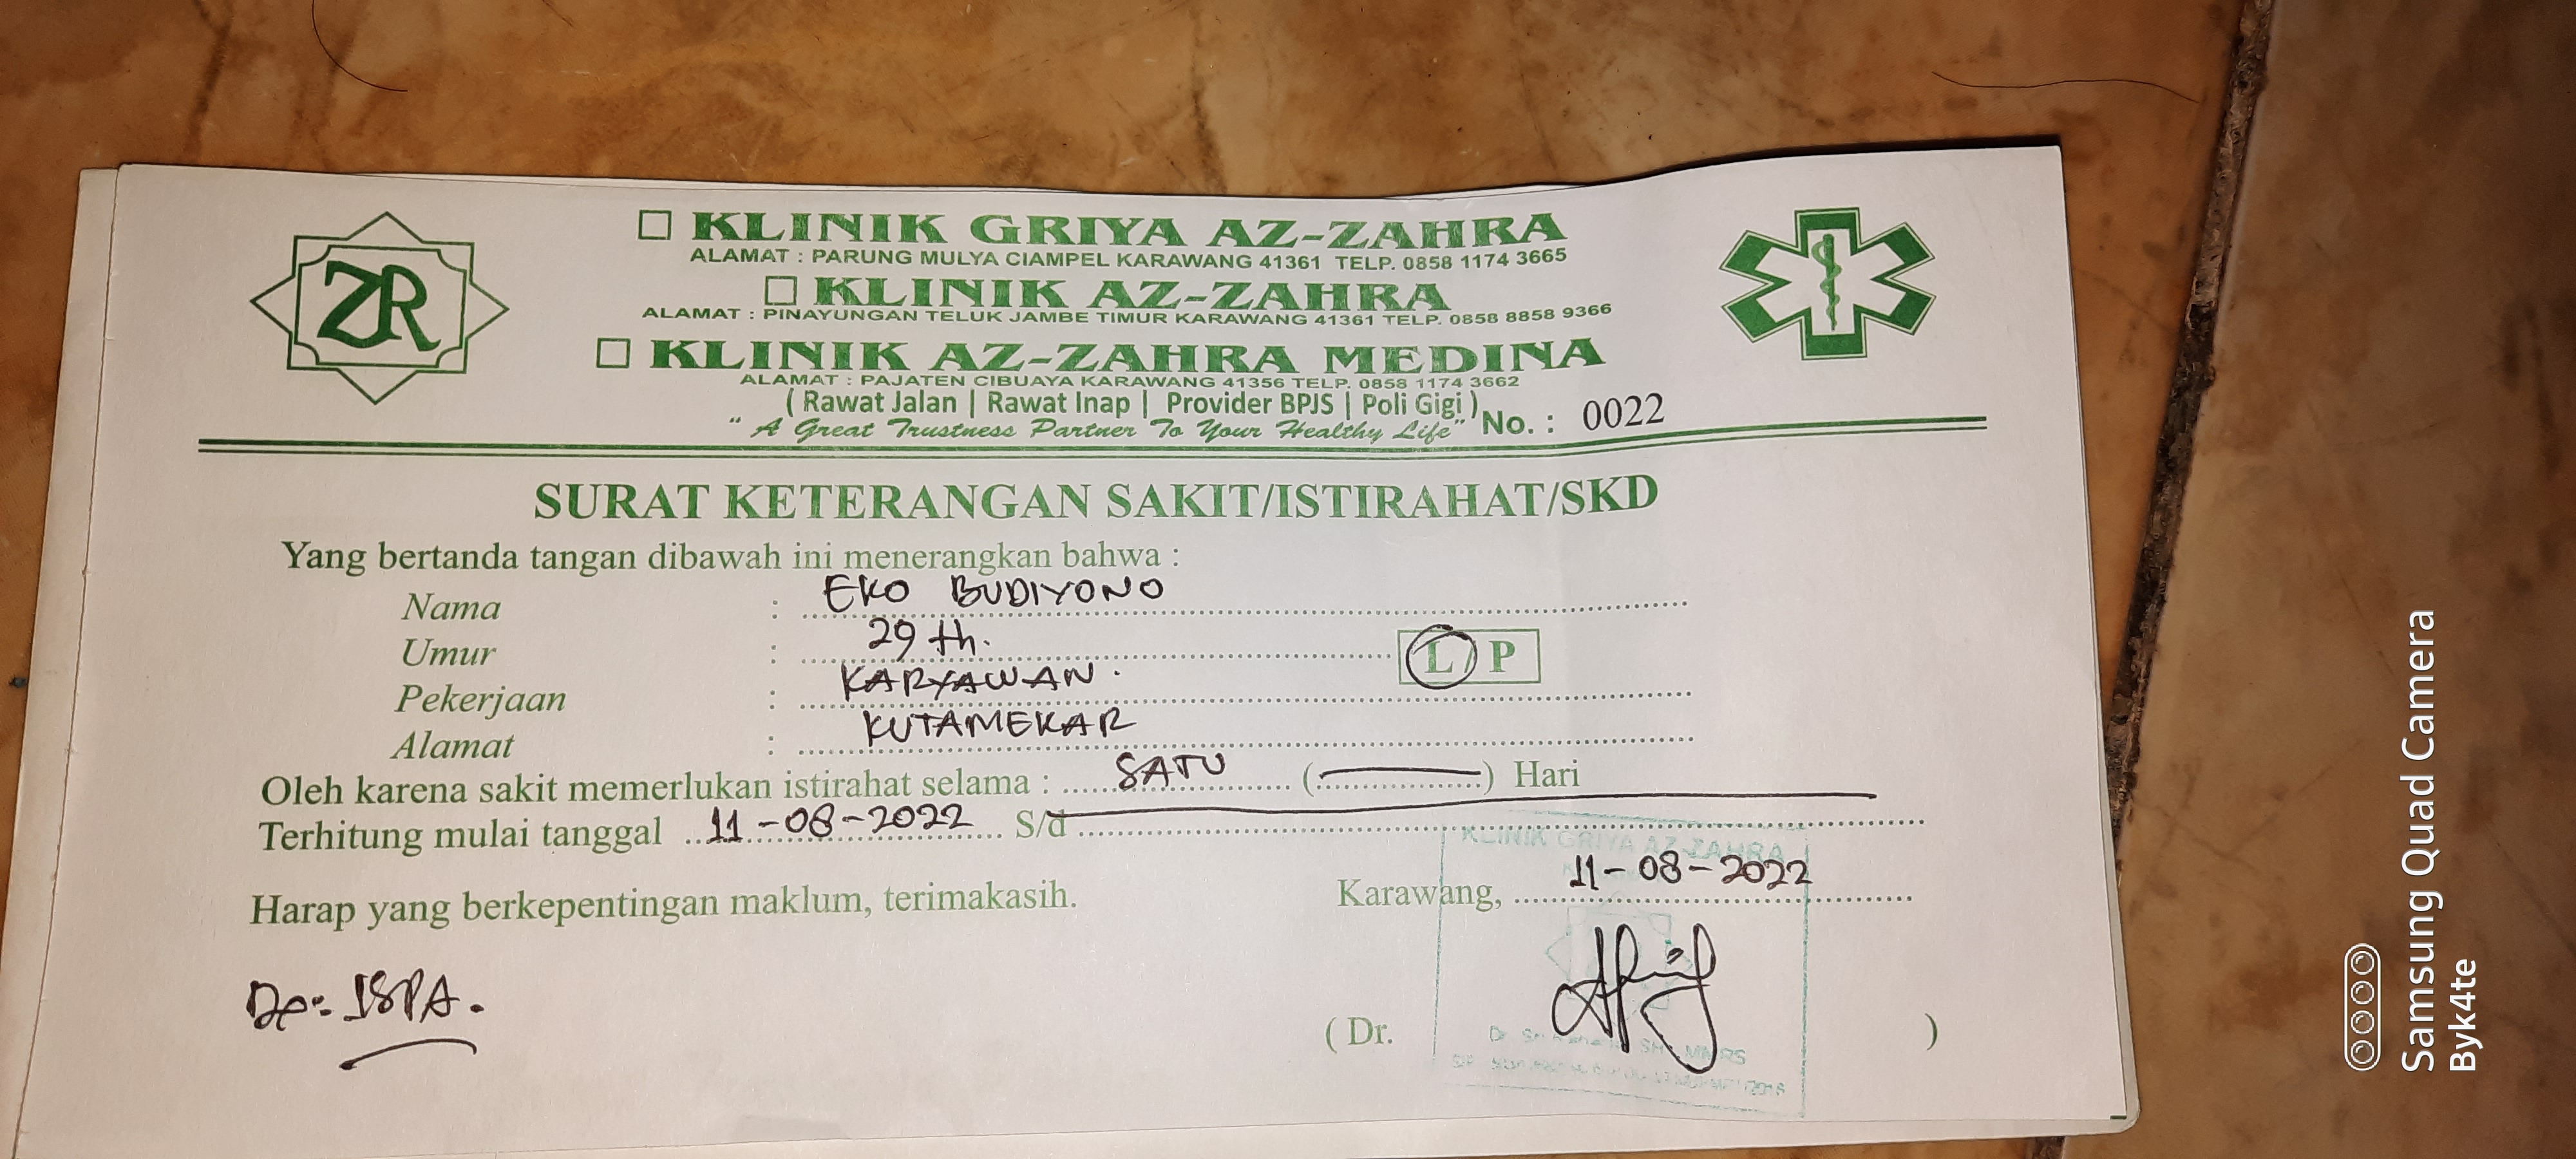 ZR
☐ KLINIK GRIYA AZ-ZAHRA
ALAMAT : PARUNG MULYA CIAMPEL KARAWANG 41361 TELP. 0858 1174 3665
☐ KLINIK AZ-ZAHRA
ALAMAT : PINAYUNGAN TELUK JAMBE TIMUR KARAWANG 41361 TELP. 0858 8858 9366
☐ KLINIK AZ-ZAHRA MEDINA
ALAMAT : PAJATEN CIBUAYA KARAWANG 41356 TELP. 0858 1174 3662
( Rawat Jalan | Rawat Inap | Provider BPJS | Poli Gigi )
" A Great Trustness Partner To Your Healthy Life" No. : 0022
SURAT KETERANGAN SAKIT/ISTIRAHAT/SKD
Yang bertanda tangan dibawah ini menerangkan bahwa :
Nama : EKO BUDIYONO
Umur : 29 th. L / P
Pekerjaan : KARYAWAN.
Alamat : KUTAMEKAR
Oleh karena sakit memerlukan istirahat selama : SATU (..........) Hari
Terhitung mulai tanggal ... 11-08-2022 ... S/d ..........
Harap yang berkepentingan maklum, terimakasih.
Karawang, 11-08-2022
ISPA.
KLINIK GRIYA AZ-ZAHRA
( Dr. )
Samsung Quad Camera
Byk4te